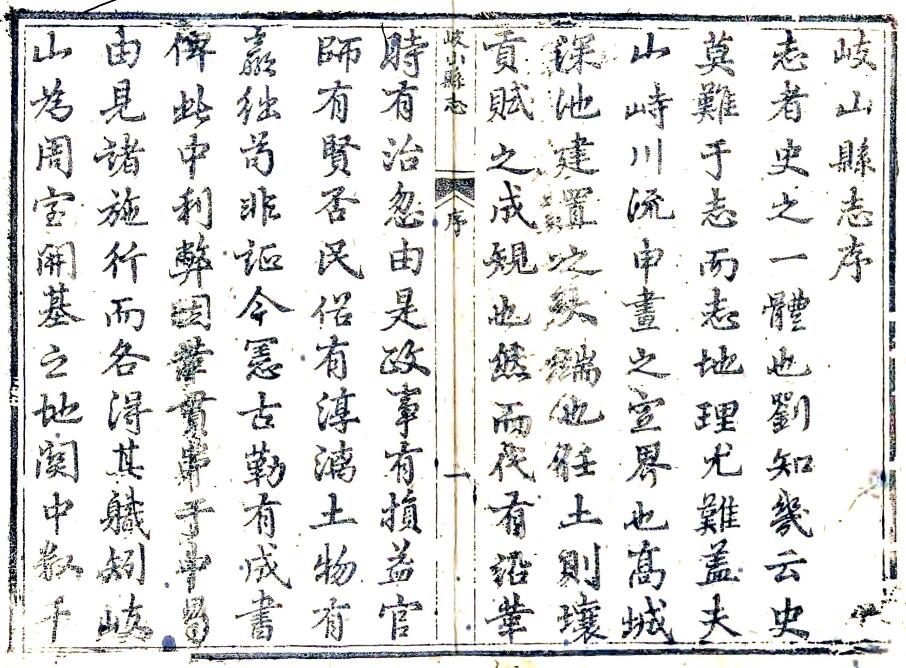 岐山縣志序
志者史之一體也劉知幾云史
莫難于志而志地理尤難蓋夫
山峙川流申畫之定界也高城
深池建置之榘端也任土則壤
貢賦之成規也然而代有沿革
岐山縣志
序
一
時有治忽由是政事有損益官
師有賢否民俗有淳漓土物有
嬴絀苟非証今憲古勒有成書
俾此中利弊因革貫串于中曷
由見諸施行而各得其職矧岐
山為周室開基之地関中數千